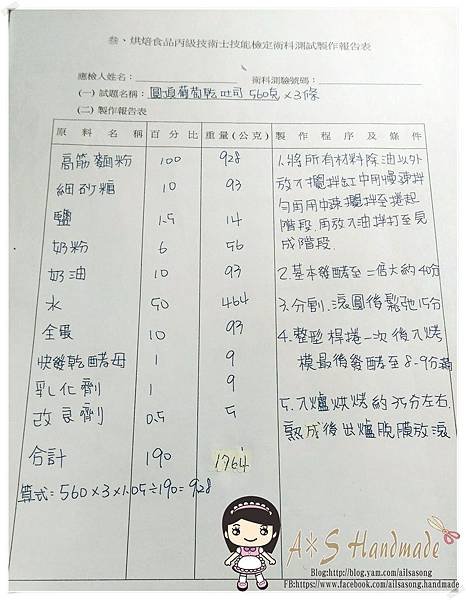 叁、烘焙食品丙級技術士技能檢定術科測試製作報告表
應檢人姓名： 術科測驗號碼：
(一) 試題名稱：圓頂葡萄乾吐司 560克×3條
(二) 製作報告表
原料名稱 百分比 重量(公克) 製作程序及條件
高筋麵粉 100 928
細砂糖 10 93
鹽 1.5 14
奶粉 6 56
奶油 10 93
水 50 464
全蛋 10 93
快發乾酵母 1 9
乳化劑 1 9
改良劑 0.5 5
合計 190 1764
算式：560×3×1.05÷190=928
1.將所有材料除油以外
放入攪拌缸中用慢速拌
勻再用中速攪拌至捲起
階段.再放入油拌打至完
成階段.
2.基本發酵至二倍大約40分
3.分割.滾圓後鬆弛15分
4.整型 桿捲一次後入烤
模最後發酵至8-9分滿
5.入爐烘烤約35分左右.
熟成後出爐脫膜放涼
A×S Handmade
Blog:http://blog.yam.com/ailsasong
FB:https://www.facebook.com/ailsasong.handmade